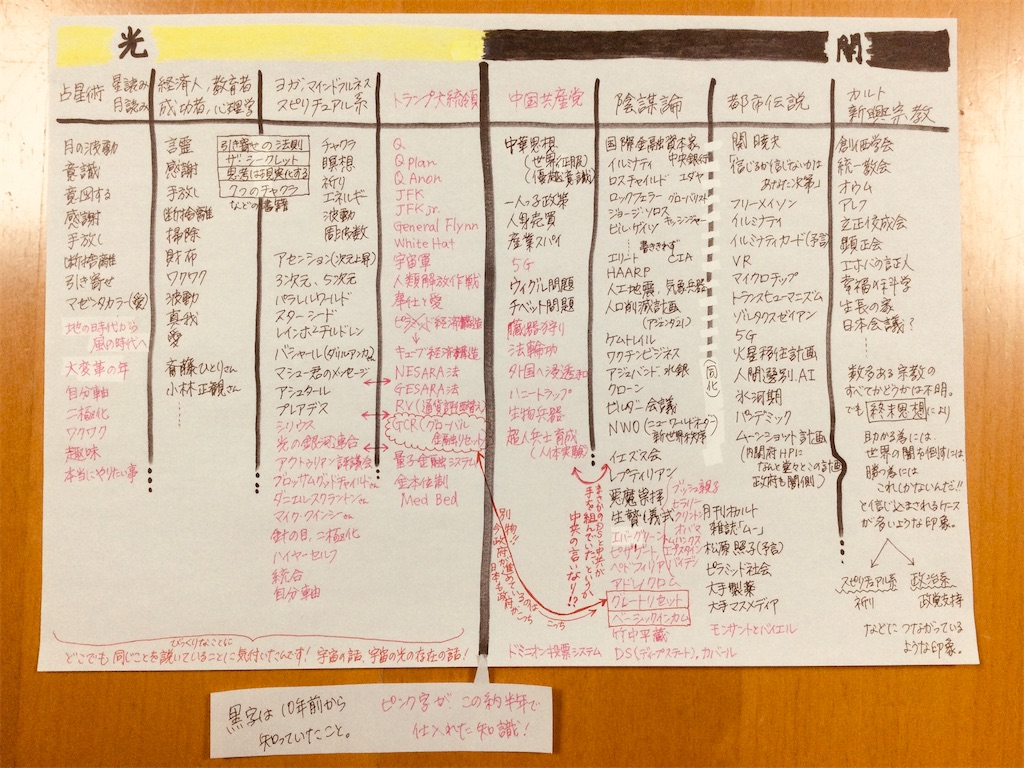 光
闇
占星術 星読み
月読み
経済人、教育者
成功者、心理学
ヨガ、マインドフルネス
スピリチュアル系
トランプ大統領
中国共産党
陰謀論
都市伝説
カルト
新興宗教
月の波動
意識
意図する
感謝
手放し
断捨離
引き寄せ
マゼンタカラー(愛)
地の時代から
風の時代へ
大変革の年
自分軸
二極化
ワクワク
趣味
本当にやりたい事
言霊
感謝
手放し
断捨離
掃除
財布
ワクワク
波動
真我
愛
斎藤ひとりさん
小林正観さん
引き寄せの法則
ザ・シークレット
思考は現実化する
7つのチャクラ
などの書籍
チャクラ
瞑想
祈り
エネルギー
波動
周波数
アセンション(次元上昇)
3次元、5次元
パラレルワールド
スターシード
レインボーチルドレン
バシャール(ダリルアンカさん)
マシュー君のメッセージ
アシュタール
プレアデス
シリウス
光の銀河連合
アクトゥリアン評議会
ブロッサムグッドチャイルドさん
ダニエルスクラントンさん
マイク・クインシーさん
針の目、二極化
ハイヤーセルフ
統合
自分軸
Q
Q plan
Q Anon
JFK
JFK jr.
General Flynn
White Hat
宇宙軍
人類解放作戦
奉仕と愛
ピラミッド経済構造
キューブ経済構造
NESARA法
GESARA法
RV(通貨評価替え)
GCR(グローバル
金融リセット)
量子金融システム
金本位制
Med Bed
中華思想
(世界征服)
(優越意識)
一人っ子政策
人身売買
産業スパイ
5G
ウィグル問題
チベット問題
臓器狩り
法輪功
外国へ浸透工作
ハニートラップ
生物兵器
超人兵士育成
(人体実験)
まさかのDSと中共が
手を組んでいた、というか、
中共の言いなり!?
別物!!
今政府が進めているのは
日本も政府がこっち
こっち
国際金融資本家
中央銀行
イルミナティ
ロスチャイルド ユダヤ
ロックフェラー グローバリスト
ジョージ・ソロス キッシンジャー
ビル・ゲイツ
書ききれず
エリート CIA
HAARP
人工地震、気象兵器
人口削減計画
(アジェンダ21)
ケムトレイル
ワクチンビジネス
アジュバンド 水銀
クローン
ビルダー会議
NWO(ニューワールドオーダー)
新世界秩序
イエズス会
レプティリアン
悪魔崇拝
生贄儀式
ブッシュ親子
ヒラリー
クリントン
エバーグリーン オバマ
ピザゲート エプスタイン
ペドフィリア バイデン
アドレノクロム
グレートリセット
ベーシックインカム
竹中平蔵
DS(ディープステート)、カバール
ドミニオン投票システム
同化
関暁夫
「信じるか信じないかは
あなた次第」
フリーメイソン
イルミナティ
イルミナティカード(予言)
VR
マイクロチップ
トランスヒューマニズム
ゾルタクスゼイアン
5G
火星移住計画
人間選別、AI
氷河期
パンデミック
ムーンショット計画
(内閣府HPに
なんと堂々とこの計画
政府も闇側)
月刊オカルト
雑誌「ムー」
松原照子(予言)
ピラミッド社会
大手製薬
大手マスメディア
モンサントとバイエル
創価学会
統一教会
オウム
アレフ
立正佼成会
顕正会
エホバの証人
幸福の科学
生長の家
日本会議?
数多ある宗教の
すべてかどうかは不明。
でも終末思想により
助かる為には、
世界の闇を倒すには
勝つ為には
これしかないんだ!!
と信じ込まされるケース
が多いような印象。
スピリチュアル系 政治活
祈り 政党支持
などにつながっている
ような印象。
びっくりなことに
どこでも同じことを説いていることに気付いたんです!宇宙の話、宇宙の光の存在の話!
黒字は10年前から
知っていたこと。
ピンク字が、この約半年で
仕入れた知識!